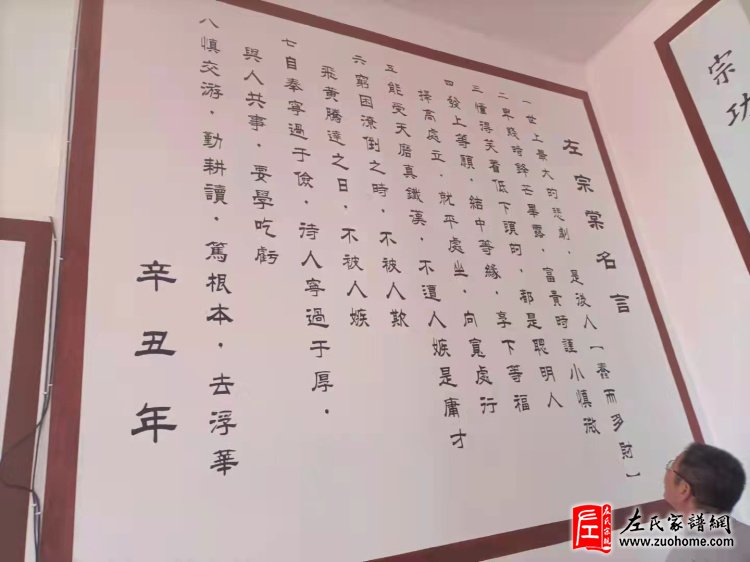 左宗棠名言
一世上最大的悲剧，是後人【而多財】
二卑賤時鋒芒畢露，富貴時謹小慎微
三懂得笑看低下頭的，都是聰明人
四發上等願，結中等緣，享下等福
擇高處立，就平處坐，向寬處行
五能受天磨真鐵漢，不遭人嫉是庸才
六窮困潦倒之時，不被人欺
飛黄騰達之日，不被人嫉
七自奉寧過于儉，待人寧過于厚。
與人共事，要學吃虧
八慎交游，勤耕讀，篤根本，去浮華
辛丑年
宗功
左氏宗親
左氏家譜網
www.zuohome.com